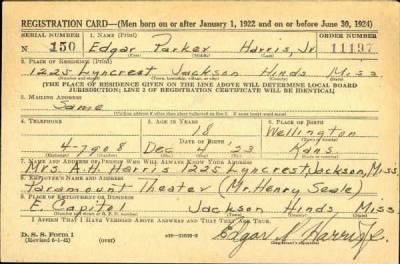 REGISTRATION CARD—(Men born on or after January 1, 1922 and on or before June 30, 1924)
SERIAL NUMBER 1. NAME (Print) ORDER NUMBER
N 150 Edgar Parker Harris, Jr 11197
(First) (Middle) (Last)
2. PLACE OF RESIDENCE (Print)
1225 Lyncrest Jackson Hinds Miss.
(Number and street) (Town, township, village, or city) (County) (State)
[THE PLACE OF RESIDENCE GIVEN ON THE LINE ABOVE WILL DETERMINE LOCAL BOARD
JURISDICTION; LINE 2 OF REGISTRATION CERTIFICATE WILL BE IDENTICAL]
3. MAILING ADDRESS
Same
(Mailing address if other than place indicated on line 2. If same insert word same)
4. TELEPHONE 5. AGE IN YEARS 6. PLACE OF BIRTH
18 Wellington
DATE OF BIRTH (Town or county)
4-7908 Dec 4 '23 Kans.
(Exchange) (Number) (Mo.) (Day) (Yr.) (State or country)
7. NAME AND ADDRESS OF PERSON WHO WILL ALWAYS KNOW YOUR ADDRESS
Mrs. A.H. Harris 1225 Lyncrest, Jackson, Miss.
8. EMPLOYER'S NAME AND ADDRESS
Paramount Theater (Mr. Henry Seale)
9. PLACE OF EMPLOYMENT OR BUSINESS
E. Capitol Jackson Hinds Miss.
(Number and street or R. F. D. number) (Town) (County) (State)
I AFFIRM THAT I HAVE VERIFIED ABOVE ANSWERS AND THAT THEY ARE TRUE.
D. S. S. Form 1
(Revised 6-1-42) (over)